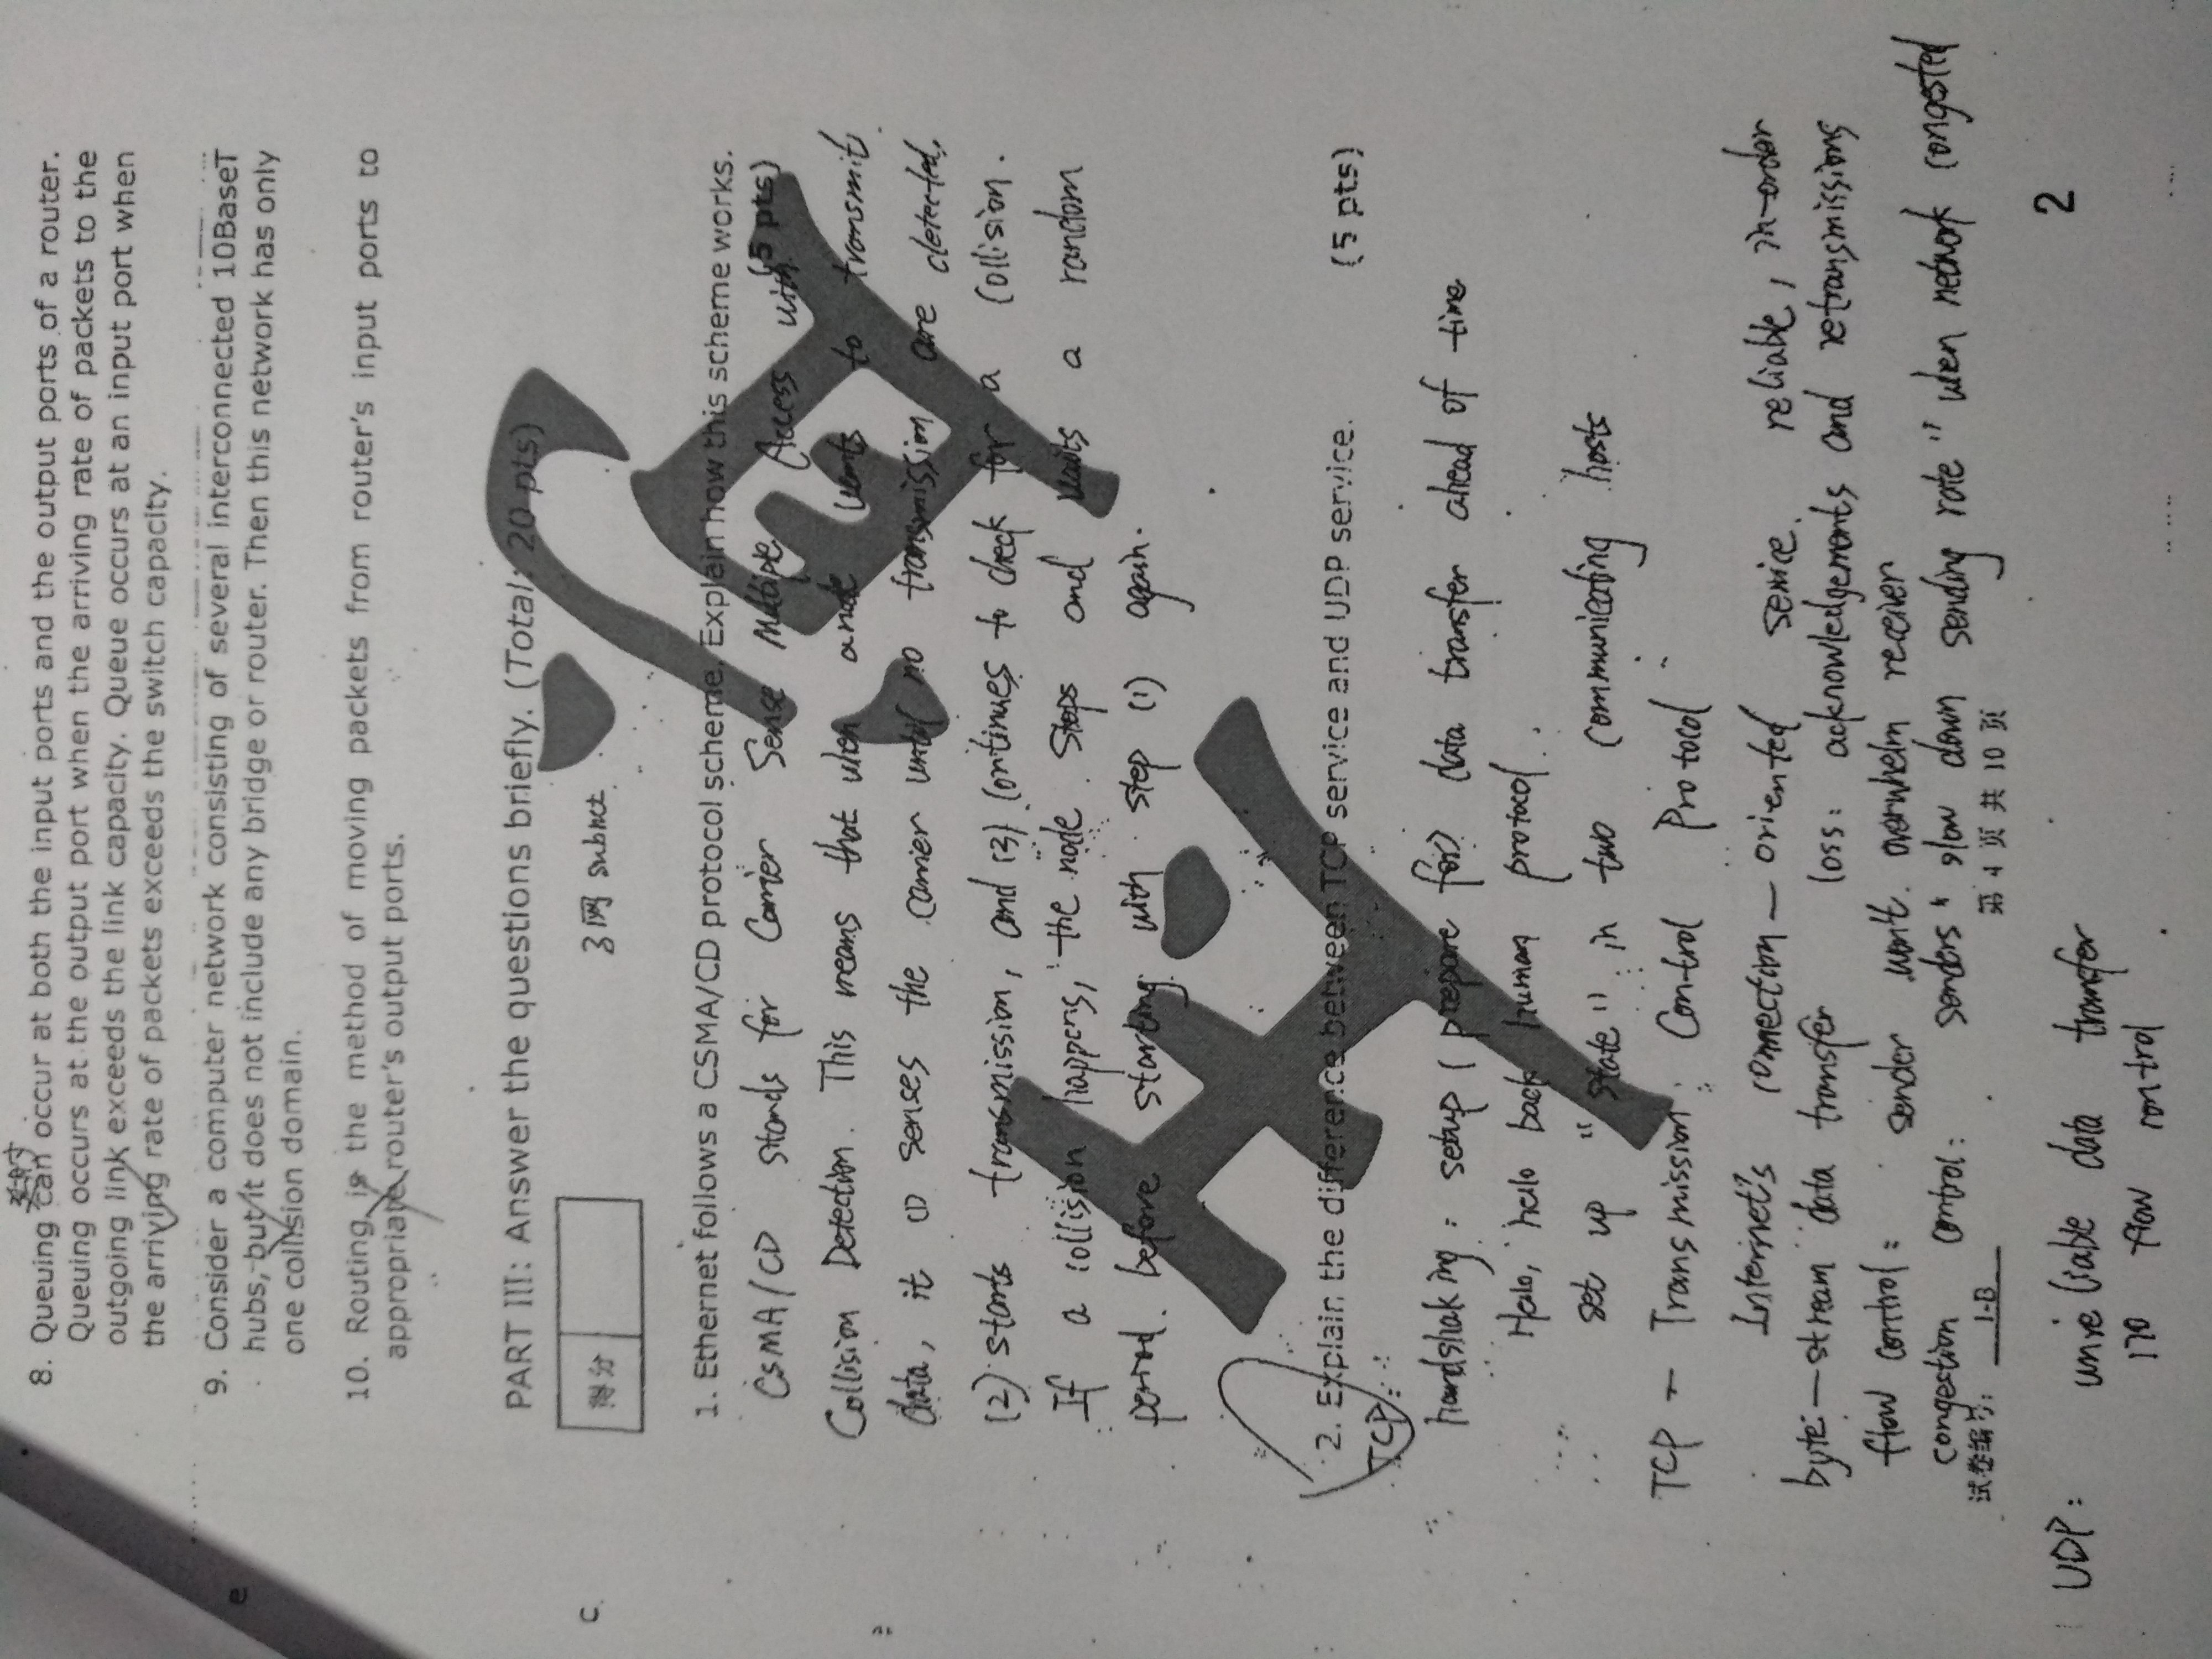 8. Queuing can occur at both the input ports and the output ports of a router.
Queuing occurs at the output port when the arriving rate of packets to the
outgoing link exceeds the link capacity. Queue occurs at an input port when
the arriving rate of packets exceeds the switch capacity.
9. Consider a computer network consisting of several interconnected 10BaseT
hubs, but it does not include any bridge or router. Then this network has only
one collision domain.
10. Routing is the method of moving packets from router's input ports to
appropriate router's output ports.
PART III: Answer the questions briefly. (Total: 20 pts)
得分
子网 subnet
1. Ethernet follows a CSMA/CD protocol scheme. Explain how this scheme works.
(5 pts)
CSMA/CD stands for Carrier Sense Multiple Access with
Collision Detection. This means that when a node wants to transmit
data, it (1) senses the carrier until no transmission are detected.
(2) starts transmission, and (3) continues to check for a collision.
If a collision happens, the node stops and waits a random
period before starting with step (1) again.
2. Explain the difference between TCP service and UDP service. (5 pts)
TCP:
handshaking: setup (prepare for) data transfer ahead of time
Halo, halo back human protocol.
set up "state" in two communicating hosts
TCP - Transmission Control Protocol
Internet's connection-oriented service. reliable, in-order
byte-stream data transfer loss: acknowledgements and retransmissions
flow control: sender won't overwhelm receiver
congestion control: senders "slow down sending rate" when network congested
试卷编号: 1-B 第 4 页 共 10 页
2
UDP: unreliable data transfer
no flow control